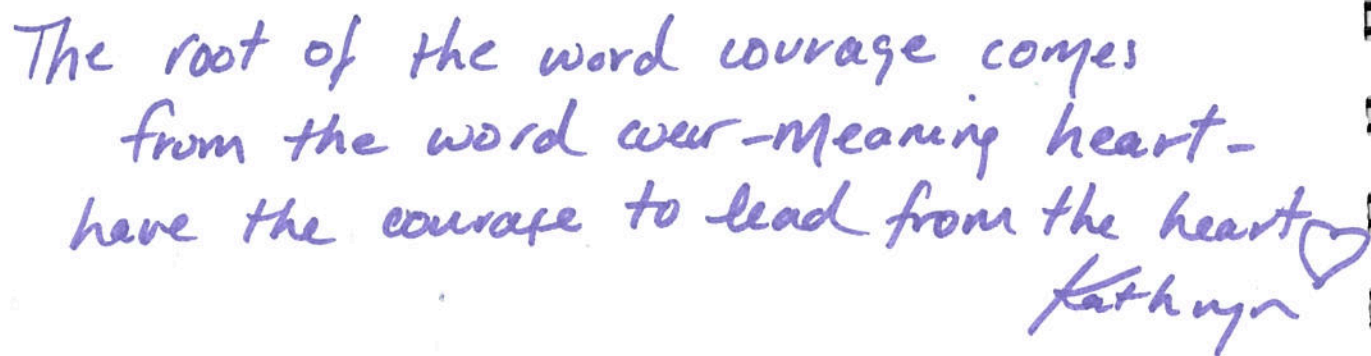 The root of the word courage comes
from the word cuer - Meaning heart -
have the courage to lead from the heart ♡
Kathryn